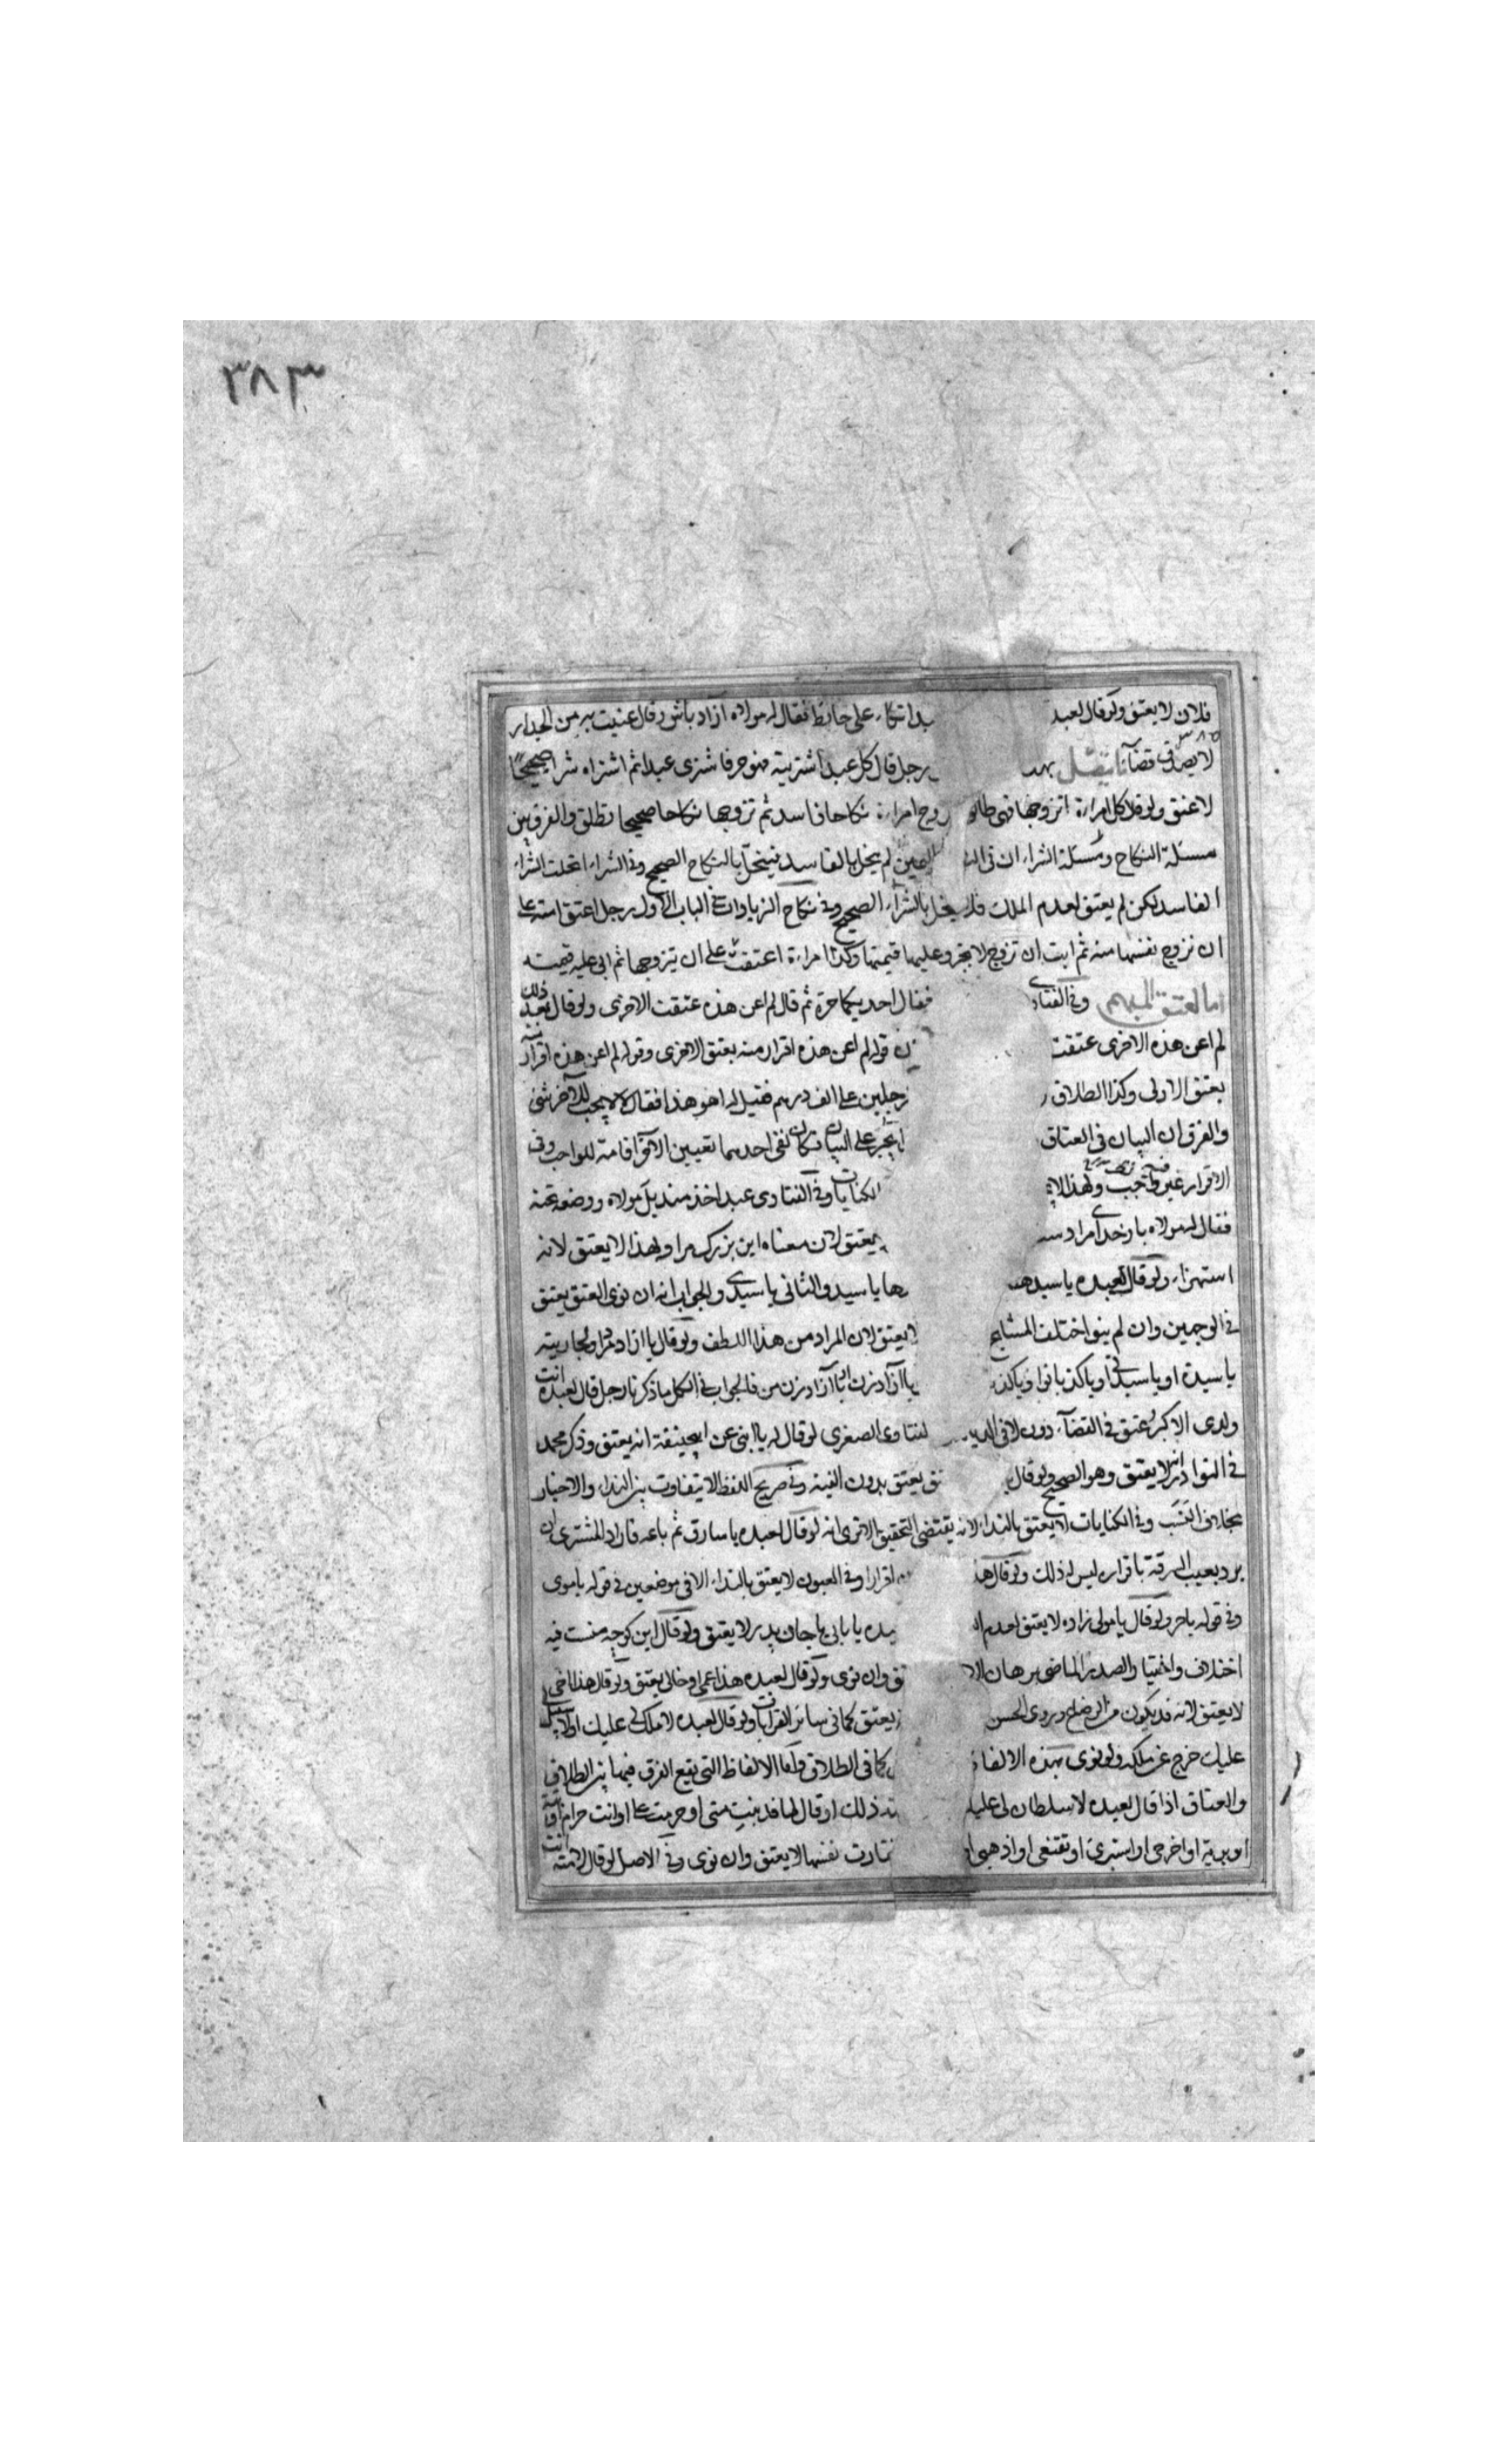 ٣٨٣
فلان لا يعتق ولو قال لعبد اتكاء على حائط فقال له مولاه آزاد باش وقال عنيت به من الجدار
لا يصدق قضاء رجل قال كل عبد اشتريته فهو حر فاشترى عبدا ثم اشتراه شراء صحيحا
لا عتق ولو قال كل امراءة اتزوجها فهي طالق امراءة نكاحا فاسد ثم تزوجها نكاحا صحيحا تطلق والفرق بين
مسئلة النكاح ومسئلة الشراء ان في اليمين لم ينحل بالفاسد فينحل بالنكاح الصحيح وفي الشراء انحلت الشراء
الفاسد لكن لم يعتق لعدم الملك فلا ينحل بالشراء الصحيح وفي نكاح الزيادات في الباب الاول رجل اعتق امته على
ان تزوج نفسها منه ثم ابت ان تزوج لا يجبر وعليها قيمتها وكذا امراءة اعتقت على ان يتزوجها ثم ابى عليه قيمته
اما العتق المبهم وفي الفتاوى فقال احديكما حرة ثم قال لم اعن هذه عتقت الاخرى ولو قال بعد ذلك
لم اعن هذه الاخرى عتقت قوله لم اعن هذه اقرار منه بعتق الاخرى وقوله لم اعن هذه اقرار منه
بعتق الاولى وكذا الطلاق رجلين على الف درهم فقيل له اهو هذا فقال لا لا يجب للآخر شئ
والفرق ان البيان في العتاق يجبر على البيان فكان نفى احدهما تعيين الآخر اقامة للواجب وفي
الاقرار غير واجب ولهذا الكنايات وفي الفتاوى عبد اخذ منديل مولاه ووضعه تحته
فقال له مولاه بار خداى مرا يعتق لان معناه اين بزرك مرا ولهذا لا يعتق لانه
استهزاء ولو قال لعبده يا سيد ها يا سيد والثاني يا سيدى والجواب انه ان نوى العتق يعتق
في الوجهين وان لم ينو اختلف المشايخ لا يعتق لان المراد من هذا اللطف ولو قال يا ازاد مرد او لجاريته
يا سيدة او يا سيدتى او يا كذبانوا يا آزاد زن او يا آزاد زن من فالجواب في الكل ما ذكرنا رجل قال لعبده انت
ولدى الاكبر عتق في القضاء دون الفتاوى الصغرى لو قال له يا ابنى عن ابي حنيفة انه يعتق وذكر محمد
في النوادر انه لا يعتق وهو الصحيح ولو قال يعتق بدون النية وفي صريح اللفظ لا يتفاوت بين النداء والاخبار
بخلاف النسب وفي الكنايات لا يعتق بالنداء لانه يقتضى التحقيق الا ترى انه لو قال لعبده يا سارق ثم باعه فاراد المشترى ان
يرد بعيب السرقة باقراره ليس له ذلك ولو قال هذا اقرارا وفي العيون لا يعتق بالنداء الا في موضعين في قوله يا مولى
وفي قوله يا حر ولو قال يا مولى زاده لا يعتق لعدم يا بابى يا جان پدر لا يعتق ولو قال اين كوجه منست فيه
اختلاف واختيار الصدر الماضى برهان وان نوى ولو قال لعبده هذا عمى او خالى يعتق ولو قال هذا اخى
لا يعتق لانه قد يكون من الرضاع وروى الحسن يعتق كما في سائر القرابات ولو قال لعبده لا ملك لى عليك او لا سبيل
عليك خرج عن ملكه ولو نوى بهذه الالفاظ كما في الطلاق واما الالفاظ التى يقع الفرق فيها بين الطلاق
والعتاق اذا قال لعبده لا سلطان لى عليك ذلك او قال لها قد بنت منى او حرمت على او انت حرام
او برية او اخرجى او استبرئ او تقنعى او اذهبى نفسها لا يعتق وان نوى وفي الاصل لو قال لامته انت